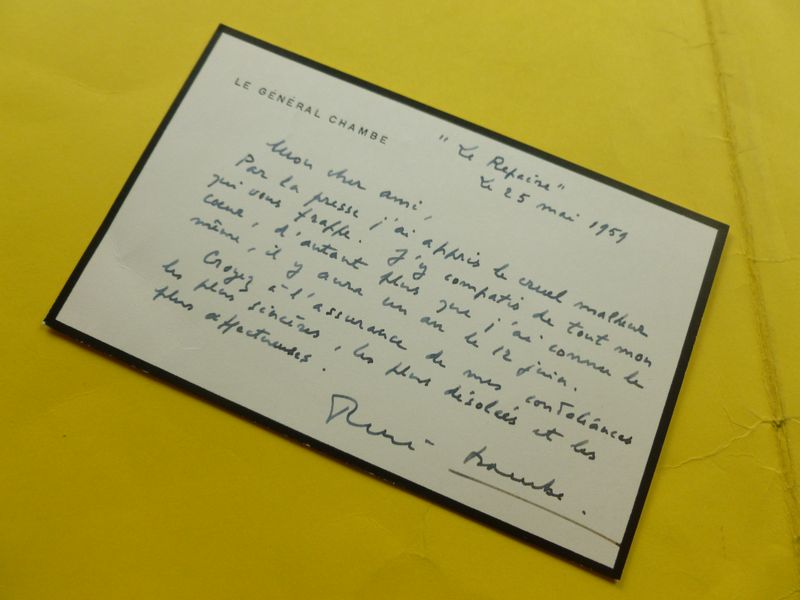 LE GÉNÉRAL CHAMBE
"Le Repaire"
Le 25 mai 1959
Mon cher ami,
Par la presse j'ai appris le cruel malheur
qui vous frappe. J'y compatis de tout mon
cœur, d'autant plus que j'ai connu le
même, il y aura un an le 12 juin.
Croyez à l'assurance de mes condoléances
les plus sincères, les plus désolées et les
plus affectueuses.
René Chambe.